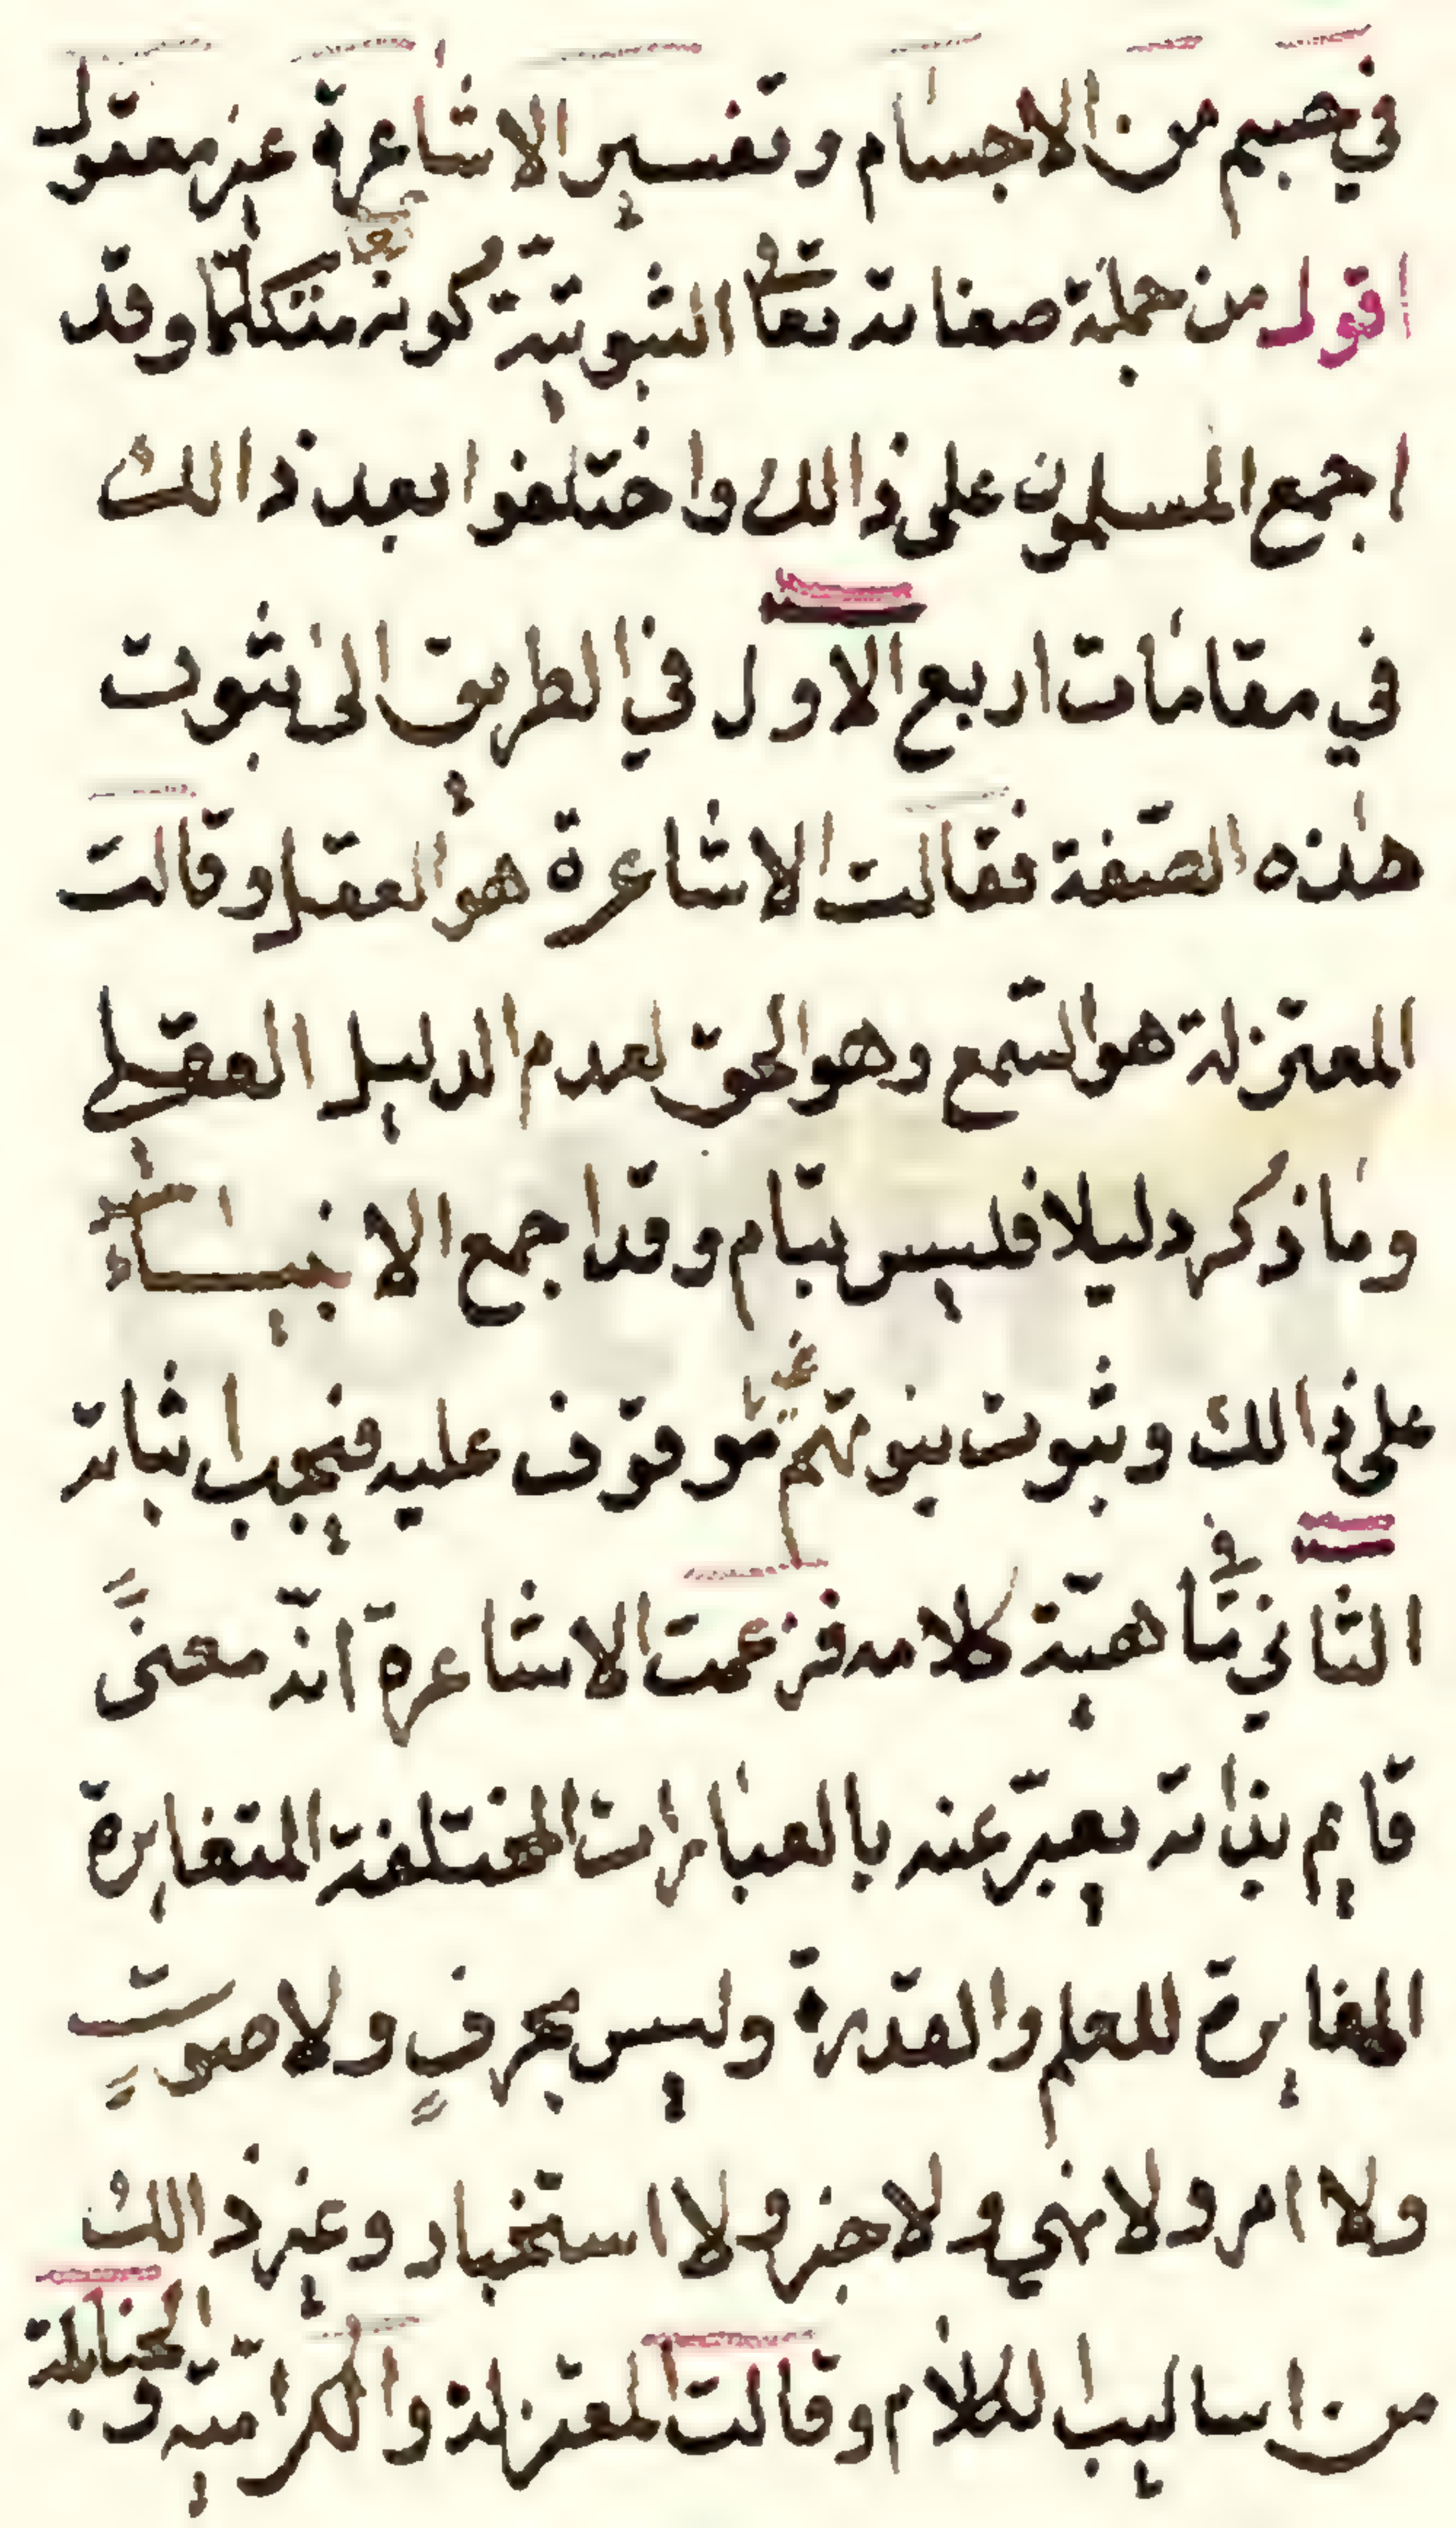 في جسم من الاجسام وتفسير الاشاعرة غير معقول
اقول من جملة صفاته تعا الثبوتية كونه متكلما وقد
اجمع المسلمون على ذالك واختلفوا بعد ذالك
في مقامات اربع الاول في الطريق الى ثبوت
هذه الصفة فقالت الاشاعرة هو العقل وقالت
المعتزلة هو السمع وهو الحق لعدم الدليل العقلي
وما ذكر دليلا فليس بتام وقد اجمع الانبياء
على ذالك وثبوت نبوتهم موقوف عليه فيجب اثباته
الثاني في ماهية كلامه فزعمت الاشاعرة انّه معنىً
قايم بذاته يعبّر عنه بالعبارات المختلفة المتغايرة
المغايرة للعلم والقدرة وليس بحرفٍ ولا صوتٍ
ولا امر ولا نهي ولا خبر ولا استخبار وغير ذالك
من اساليب الكلام وقالت المعتزلة والكرامية و الحنابلة